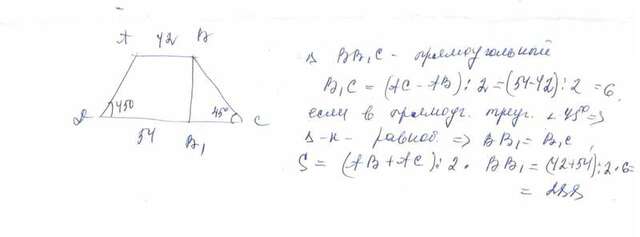 A 42 B
D 450 45° C
54 B₁
Δ BB₁C - прямоугольный
B₁C = (DC - AB) : 2 = (54-42) : 2 = 6
если в прямоуг. треуг. ∠ 45° =>
Δ-к - равноб. => BB₁ = B₁C,
S = (AB + DC) : 2 · BB₁ = (42+54) : 2 · 6 =
= 288